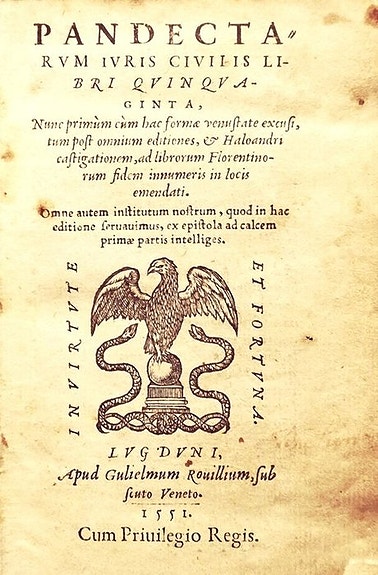 PANDECTA„
RVM IVRIS CIVILIS LI-
BRI QVINQVA-
GINTA,
Nunc primùm cùm hac formæ venustate excusi,
tum post omnium editiones, & Haloandri
castigationem, ad librorum Florentino-
rum fidem innumeris in locis
emendati.
Omne autem institutum nostrum, quod in hac
editione seruauimus, ex epistola ad calcem
primæ partis intelliges.
IN VIRTVTE
ET FORTVNA.
LVGDVNI,
Apud Gulielmum Rouillium, sub
scuto Veneto.
1551.
Cum Priuilegio Regis.